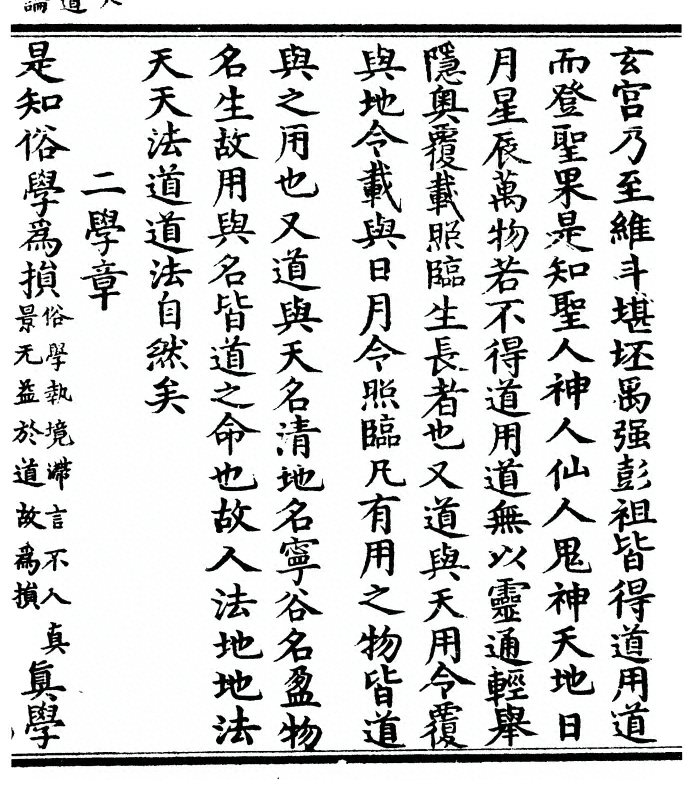 玄宮乃至維斗堪坯禺强彭祖皆得道用道
而登聖果是知聖人神人仙人鬼神天地日
月星辰萬物若不得道用道無以靈通輕舉
隱奥覆載照臨生長者也又道與天用令覆
與地令載與日月令照臨凡有用之物皆道
與之用也又道與天名清地名寧谷名盈物
名生故用與名皆道之命也故人法地地法
天天法道道法自然矣
二學章
是知俗學爲損
俗學執境滯言不入真
景无益於道故為損
眞學